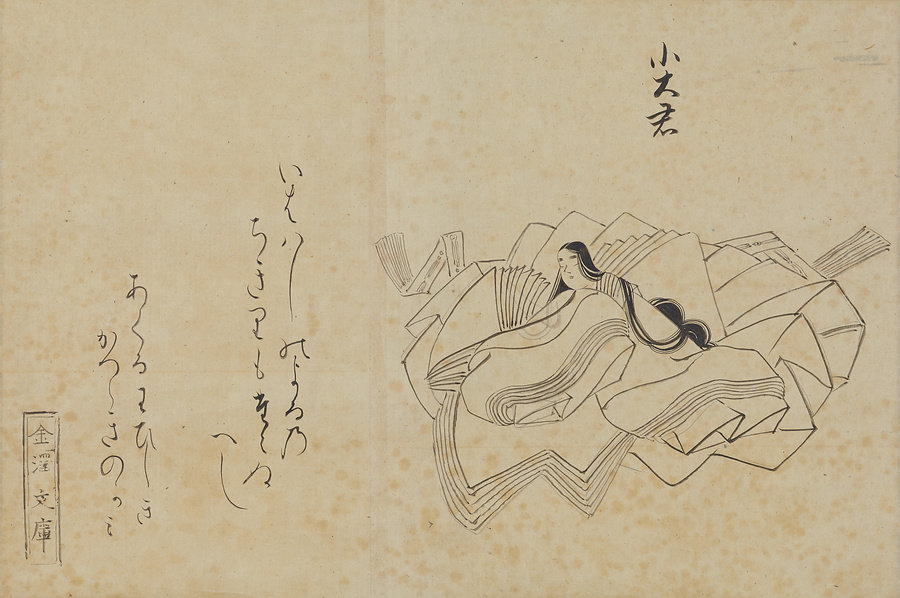 小大君
いはハしのよる乃
ちきりもたえぬ
へし
あくるわひしき
かつらきのかみ
金澤文庫